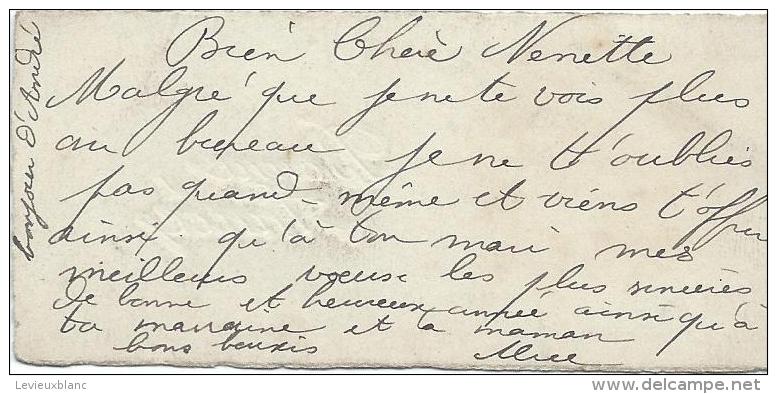 Bien Chère Nenette
Malgré que je ne te vois plus
au bureau je ne t'oublies
pas quand-même et viens t'offrir
ainsi qu'à ton mari mes
meilleurs voeux les plus sincères
de bonne et heureux année ainsi qu'à
ta marraine et ta maman
bons baisis Alice
bonjour d'André
Levieuxblanc
delcampe.net